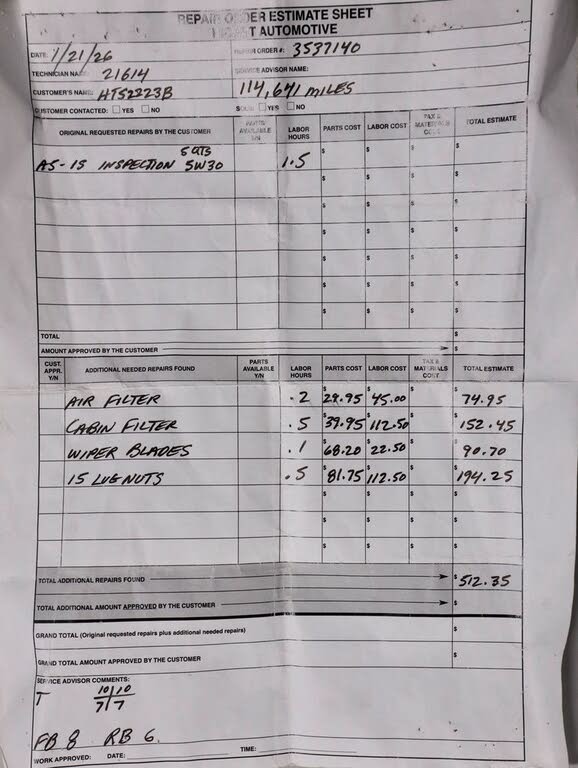 REPAIR ORDER ESTIMATE SHEET
AUTOMOTIVE
DATE: 1/21/26 REPAIR ORDER #: 3537140
TECHNICIAN NAME: 21614 SERVICE ADVISOR NAME:
CUSTOMER'S NAME: HTS2223B 114,641 MILES
CUSTOMER CONTACTED: YES NO SOLD: YES NO
ORIGINAL REQUESTED REPAIRS BY THE CUSTOMER PARTS AVAILABLE Y/N LABOR HOURS PARTS COST LABOR COST TAX & MATERIALS COST TOTAL ESTIMATE
5 QTS
AS-15 INSPECTION 5W30 1.5 $ $ $ $
$ $ $ $
$ $ $ $
$ $ $ $
$ $ $ $
$ $ $ $
$ $ $ $
TOTAL $
AMOUNT APPROVED BY THE CUSTOMER $
CUST. APPR. Y/N ADDITIONAL NEEDED REPAIRS FOUND PARTS AVAILABLE Y/N LABOR HOURS PARTS COST LABOR COST TAX & MATERIALS COST TOTAL ESTIMATE
AIR FILTER .2 $29.95 $45.00 $ $74.95
CABIN FILTER .5 $39.95 $112.50 $ $152.45
WIPER BLADES .1 $68.20 $22.50 $ $90.70
15 LUG NUTS .5 $81.75 $112.50 $ $194.25
$ $ $ $
$ $ $ $
$ $ $ $
TOTAL ADDITIONAL REPAIRS FOUND $512.35
TOTAL ADDITIONAL AMOUNT APPROVED BY THE CUSTOMER $
GRAND TOTAL (Original requested repairs plus additional needed repairs) $
GRAND TOTAL AMOUNT APPROVED BY THE CUSTOMER $
SERVICE ADVISOR COMMENTS:
T 10/10
7/7
FB 8 RB 6.
WORK APPROVED: DATE: TIME: